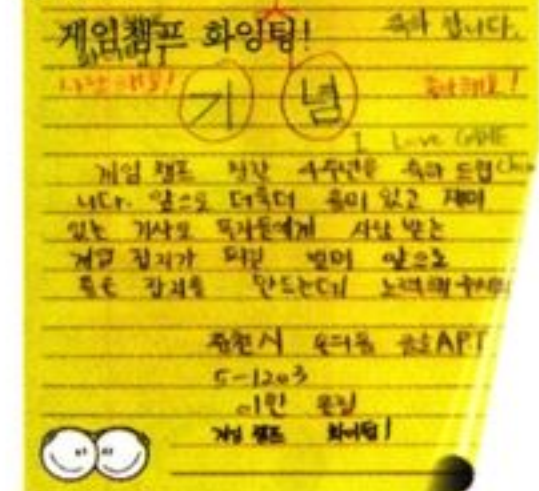 게임챔프 화잉팅! 축하 합니다.
사랑해요! 축하해요!
기 념
I Love GAME
게임 챔프 창간 4주년을 축하 드립
니다. 앞으로 더욱더 흥미 있고 재미
있는 기사로 독자들에게 사랑 받는
게임 잡지가 되길 빌며 앞으로
좋은 잡지를 만드는데 노력해주세요
춘천시 APT
5-1203
이민
게임 챔프 화이팅!